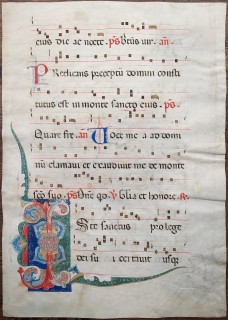 eius die ac nocte. ps Btus uir. an
Predicans preceptū domini consti
tutus est in monte sancto eius. ps
Quare fre. an Uoce mea ad dom
inū clamaui et exaudiuit me de monte
scō suo. ps Dne qo. V Glīa et honore. R.
Iste sanctus pro lege
dei sui certauit usq